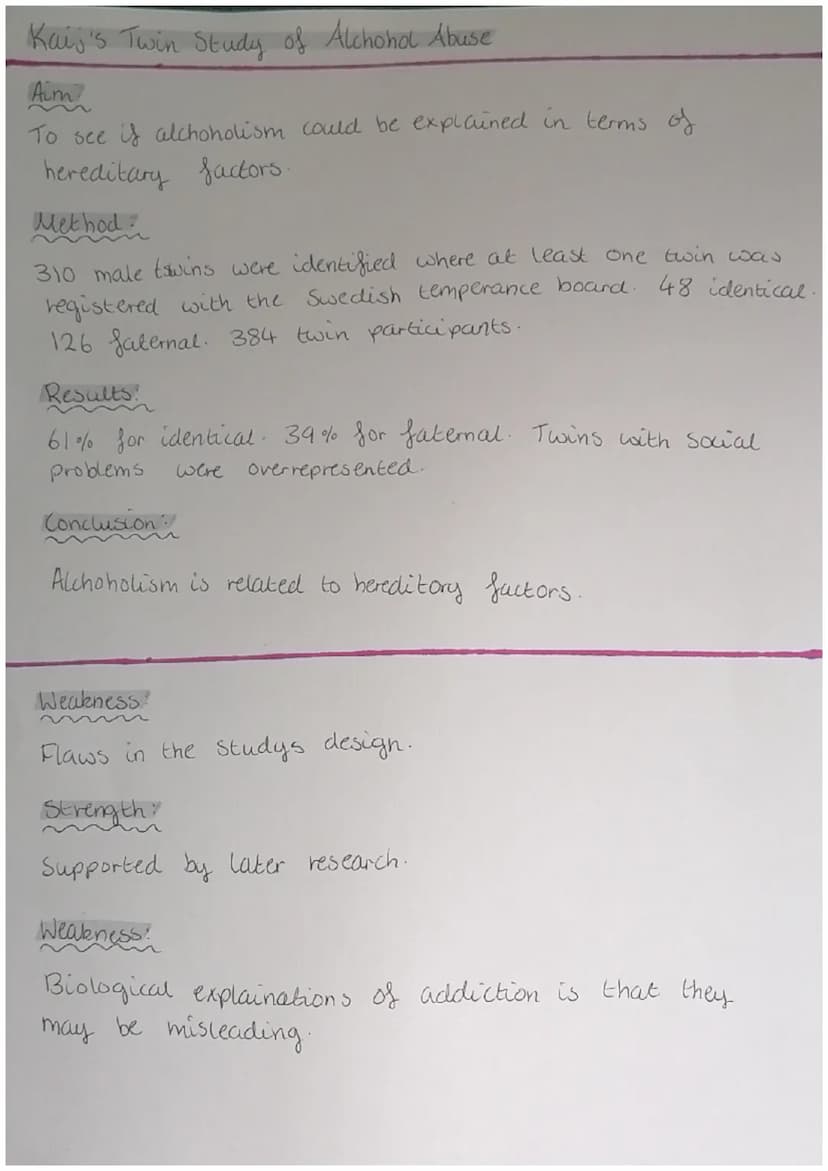 Kaij's Twin Study of Alchohol Abuse
Aim:
To see if alchoholism could be explained in terms of
hereditary factors.
Method:
310 male twins were identified where at least one twin was
registered with the Swedish temperance board. 48 identical.
126 faternal. 384 twin participants.
Results:
61% for identical. 39% for faternal. Twins with social
problems were overrepresented.
Conclusion:
Alchoholism is related to hereditory factors.
Weakness:
Flaws in the studys design.
Strength:
Supported by later research.
Weakness:
Biological explainations of addiction is that they
may be misleading.